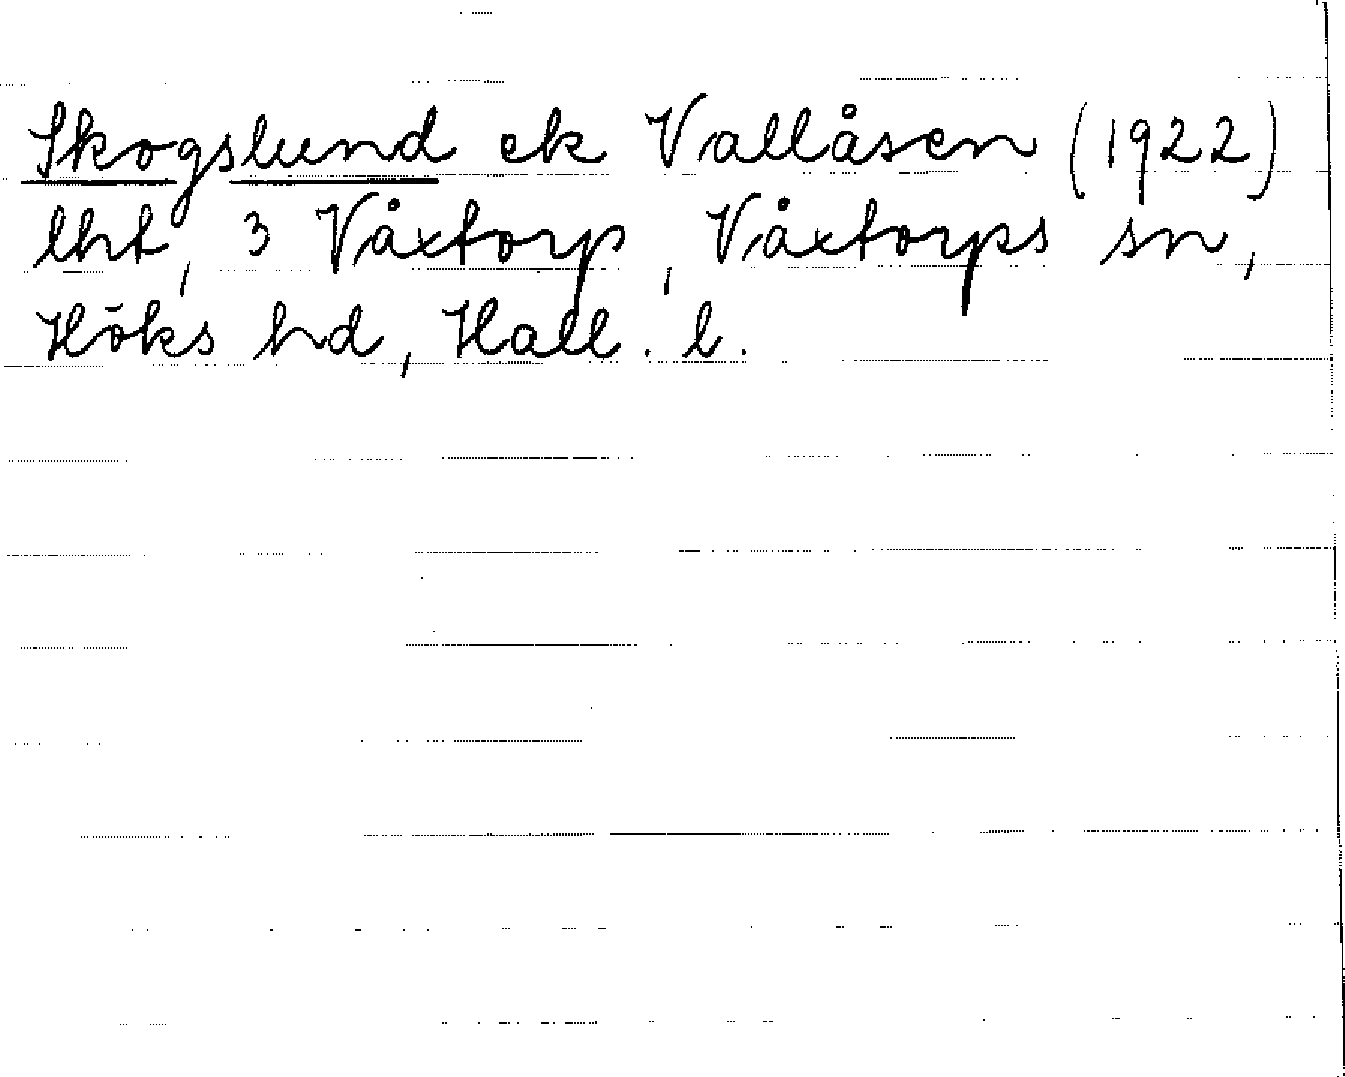 Skogslund ek Vallåsen (1922)
lht, 3 Våxtorp, Våxtorps sn,
Höks hd, Hall. l.